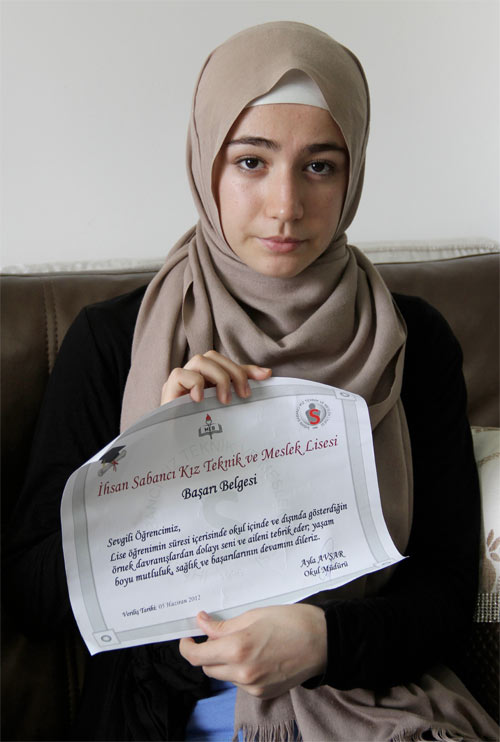 MEB
İhsan Sabancı Kız Teknik ve Meslek Lisesi
Başarı Belgesi
Sevgili Öğrencimiz,
Lise öğrenimin süresi içerisinde okul içinde ve dışında gösterdiğin
örnek davranışlardan dolayı seni ve aileni tebrik eder; yaşam
boyu mutluluk, sağlık ve başarılarının devamını dileriz.
Ayla AVŞAR
Okul Müdürü
Veriliş Tarihi: 05 Haziran 2012